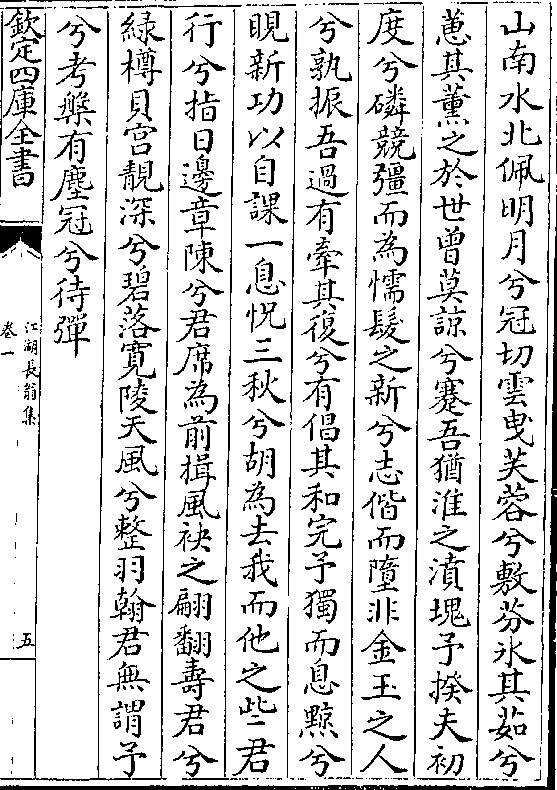 山南水北佩明月兮冠切雲曳芙蓉兮敷芬氷其茹兮
蕙其薰之於世曾莫諒兮蹇吾猶淮之濆塊予揆夫初
度兮磷競彊而為懦髮之新兮志偕而墮非金玉之人
兮孰振吾過有牽其復兮有倡其和完予獨而息黥兮
睍新功以自課一息怳三秋兮胡為去我而他之些君
行兮指日邊章陳兮君席為前揖風袂之翩翻壽君兮
緑樽貝宫靚深兮碧落寛陵天風兮整羽翰君無謂予
兮考槃有塵冠兮待彈
欽定四庫全書
江湖長翁集
卷一
五